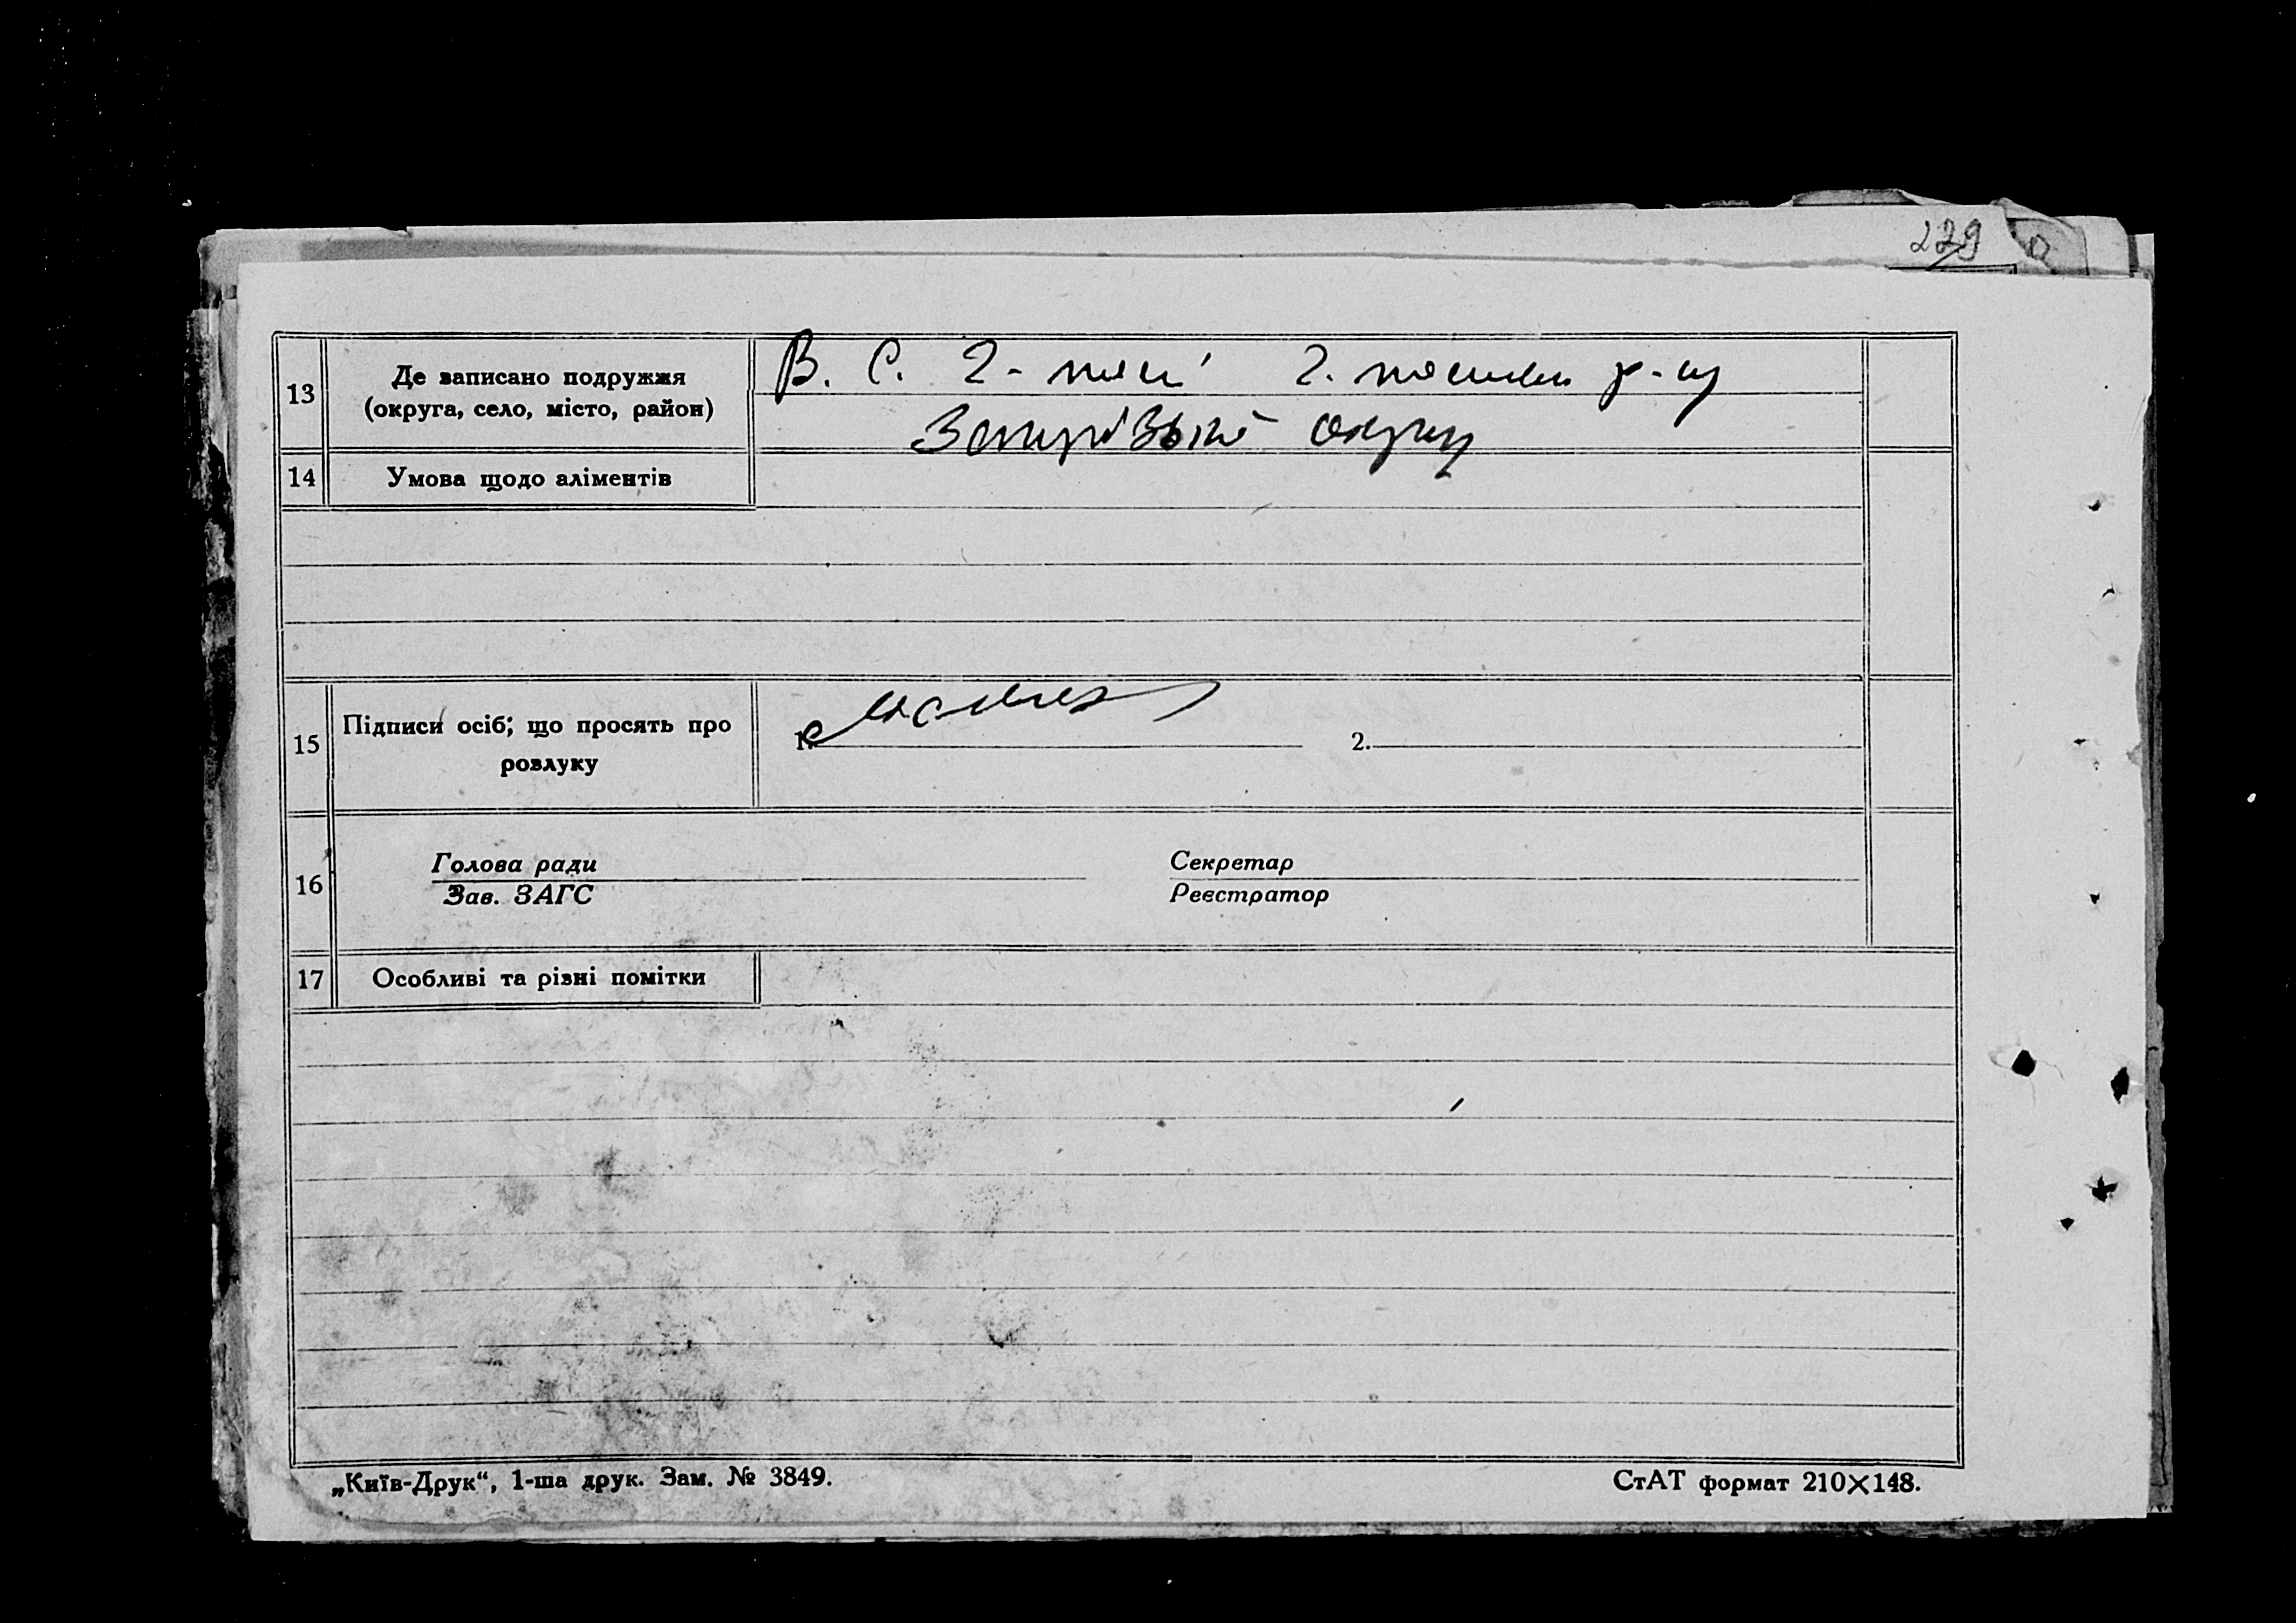 229
13 Де записано подружжя (округа, село, місто, район)
В. С. Г- р-ну
округу
14 Умова щодо аліментів
15 Підписи осіб, що просять про розлуку
1. 2.
16 Голова ради Секретар
Зав. ЗАГС Реєстратор
17 Особливі та різні помітки
„Київ-Друк“, 1-ша друк. Зам. № 3849. СтАТ формат 210×148.